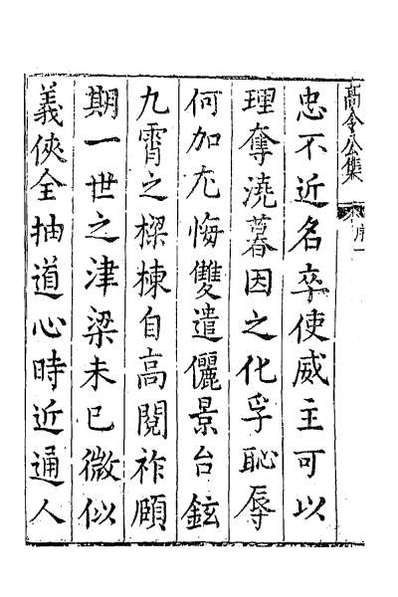 高令公集
序一
忠不近名卒使威主可以
理奪澆暮因之化孚恥辱
何加尤悔雙遣儷景台鉉
九霄之樑棟自高閱祚頤
期一世之津梁未已微似
義俠全抽道心時近通人